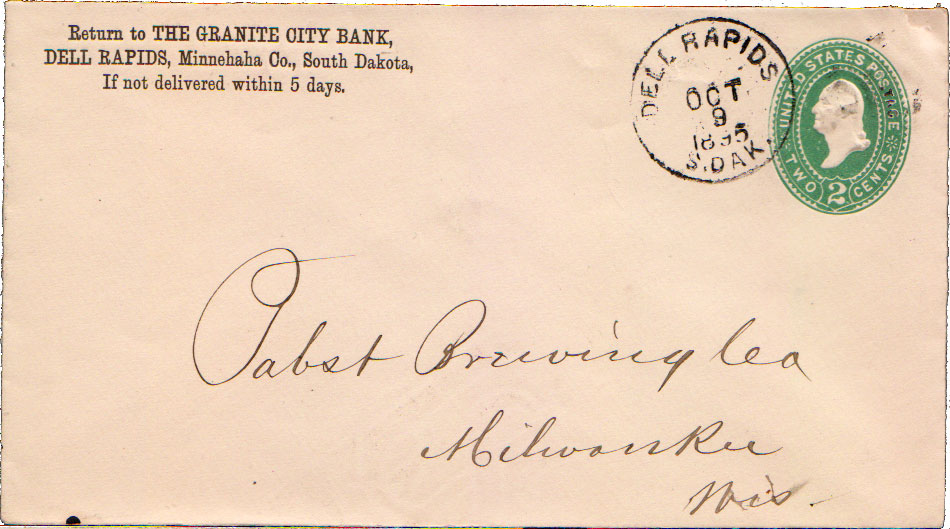 Return to THE GRANITE CITY BANK,
DELL RAPIDS, Minnehaha Co., South Dakota,
If not delivered within 5 days.
DELL RAPIDS
OCT
9
1895
S. DAK.
UNITED STATES POSTAGE
TWO 2 CENTS
Pabst Brewing Co
Milwaukee
Wis.